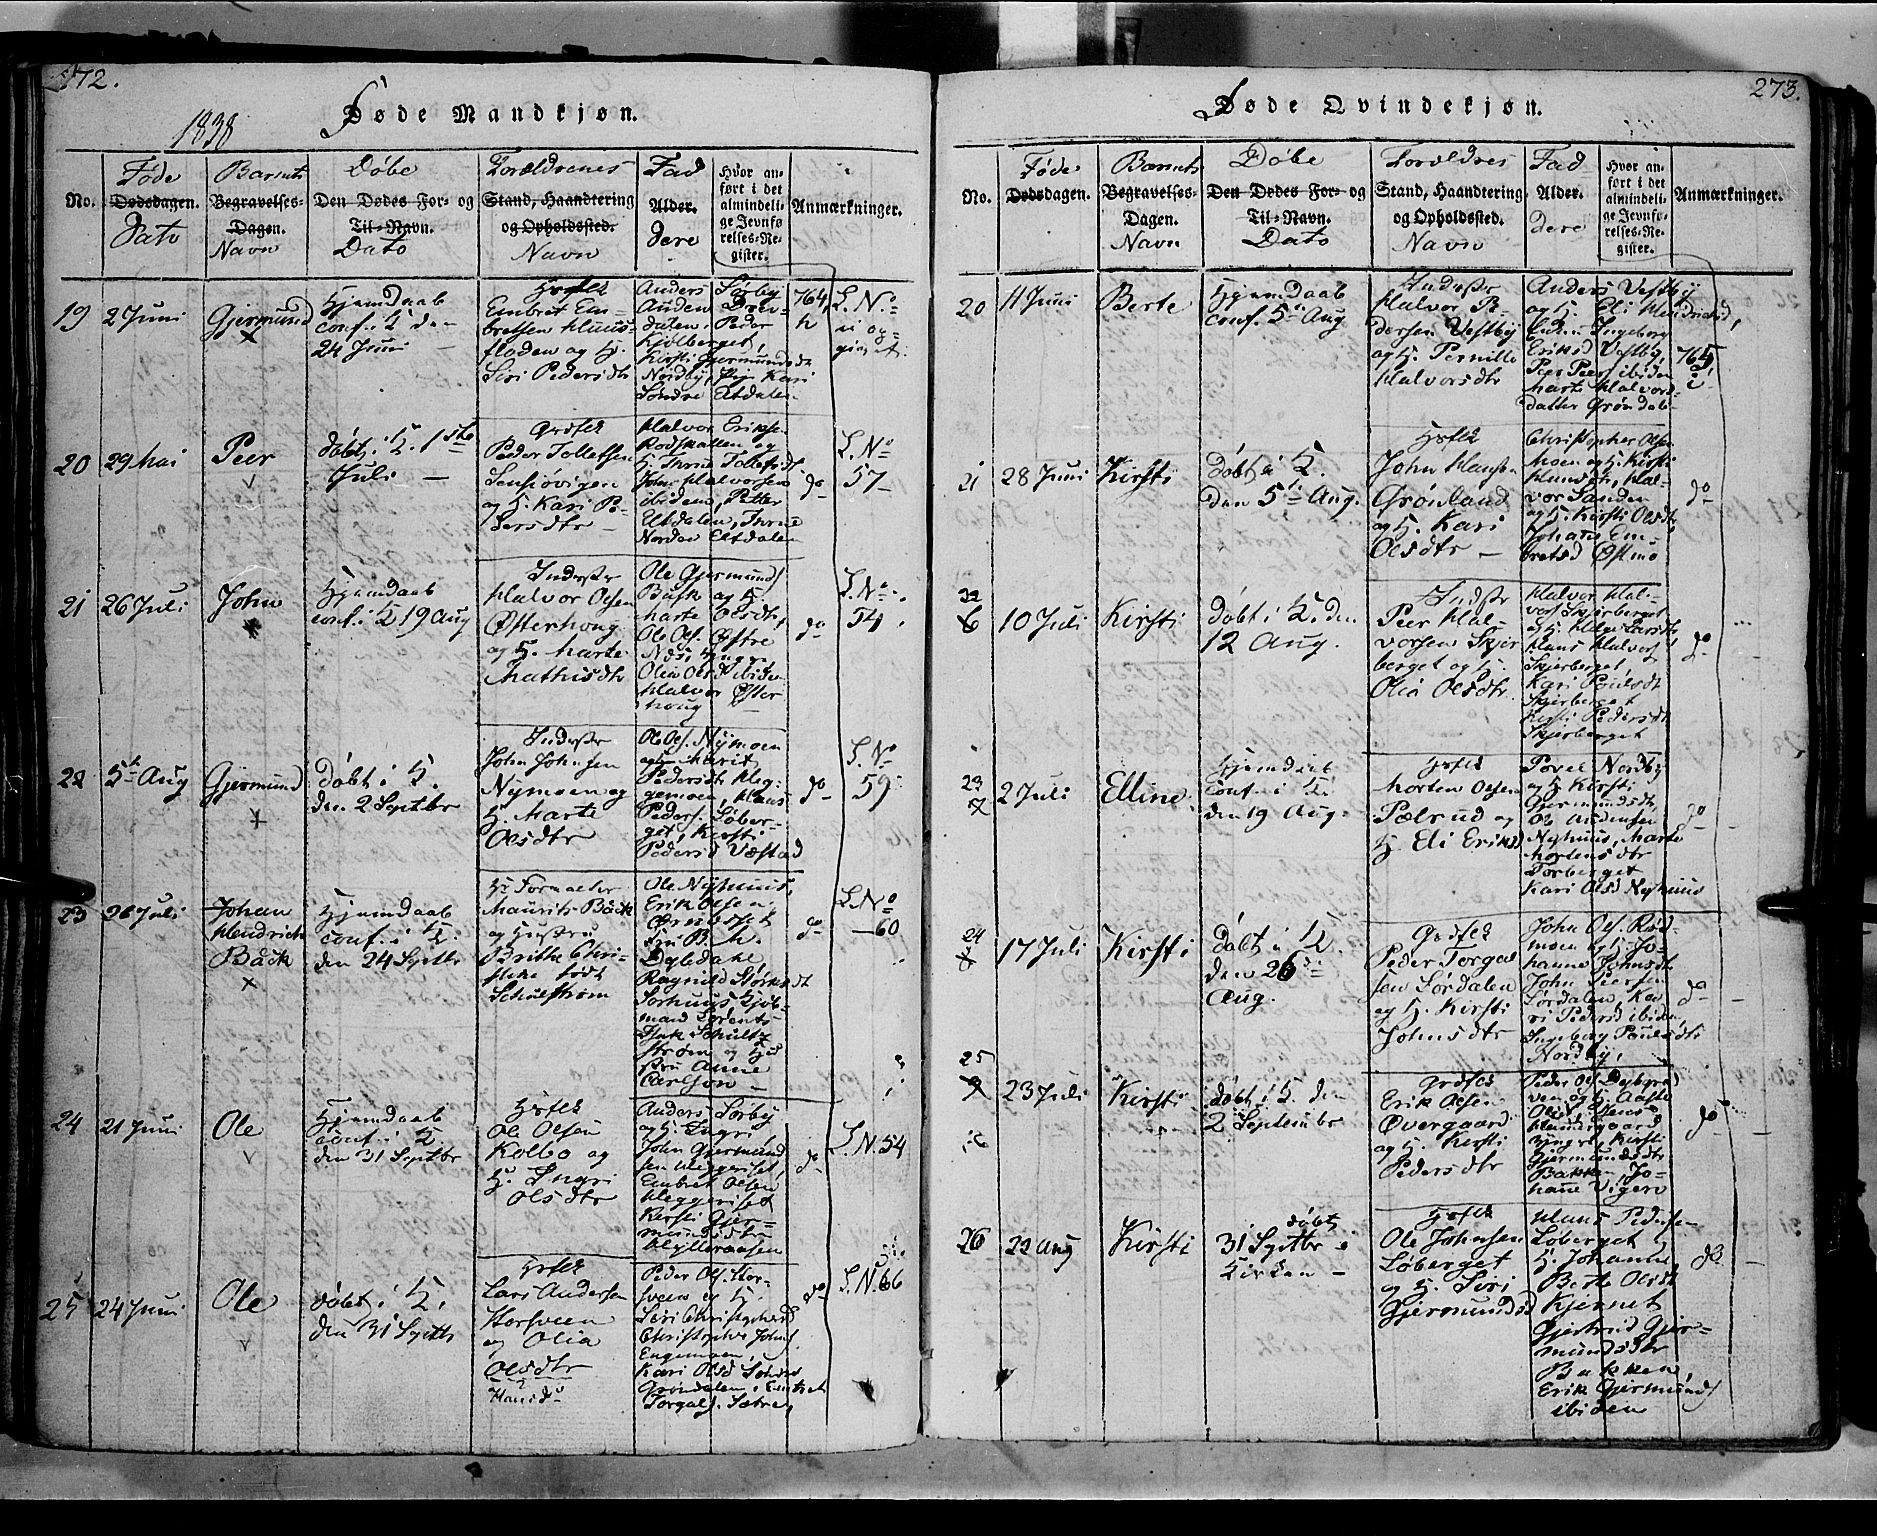 272.
1838
Døde Mandkjøn.
No.
Føde
Dødsdagen.
Dato
Barnets
Begravelses-
Dagen.
Navn
Døbe
Den Dødes For- og
Til-Navn.
Dato
Forældrenes
Stand, Haandtering
og Opholdssted.
Navn
Fad
Alder.
dere
Hvor an-
ført i det
almindeli-
ge Jevnfø-
relses-Re-
gister.
Anmærkninger.
19
2 Juni
Gjermund
Hjemdaab
conf. i K. den
24 Juni
Hosfsk
Embret Em-
bretsen
og H.
Siri Pedersdtr
Anders Sørby
Peder
Kjølberget,
Kirsti Gjermundsdtr
Nordby, Kari
Søndre Eltdalen
764
L. No
20
29 Mai
Peer
døbt i K. 1ste
Juli
Grdfsk
Peder Tollefsen
og H. Kari Pe-
dersdtr
Halvor Eriksen
og
H. Thrine Tollefsdtr
John Halvorsen
ibidem, Petter
Eltdalen, Thrine
Norden Eltdalen
do
L. No
57
21
26 Juli
John
Hjemdaab
conf. i K 19 Aug
Inderster
Halvor Olsen
Østerhoug
og H. Marte
Mathisdtr
Ole Gjermunds
Bask og H.
Marte Olsdtr,
Ole Ols. Østre
Olia Olsd ibidem
Halvor Øster-
houg
do
L. No
54
22
5te Aug
Gjermund
Døbt i K.
den 2 Septbr
Inderster
John Johnsen
Nymoen og
H. Marte
Olsdtr
Ole Ols. Nymoen
Marit
Pedersdt Heg-
gemoen, Hans
Peders. Løber-
get, Kirsti
Pedersd Væstad
do
L. No
59
23
26 Juli
Johan
Hendrich
Bäck
Hjemdaab
conf. i K.
den 24 Septbr
Hr Forvalter
Mauritz Bäck
og Hustru
Britha Chri-
stine født
Schulström
Ole Nyhuus,
Erik Olsen
Fru B. M.
Dybdahl
Ragnild
Schult-
ström og
Anne
Carlson
do
L. No
60
24
21 Juni
Ole
Hjemdaab
conf. i K.
den 31 Septbr
Hosfsk
Ole Olsen
Kolbo og
H. Ingri
Olsdtr
Anders Sørby
og H. Ingri
John Gjermund
sen Heggeriset
Embret Olsen
Heggeriset
Kersti Gjer-
mundsdtr
Hylleraasen
do
L. N. 54
25
24 Juni
Ole
døbt i K.
den 31 Septb
Hosfsk
Lars Andersen
Storsveen
og Olia
Olsdtr
Hansd
Peder Ols. Stor-
sveen og H.
Siri Christophersd
Christopher Johns
Engemoen,
Kari Olsd Søndre
Grøndalen, Embret
Torgals. Sætre,
do
L. N. 66
273.
Døde Qvindekjøn.
No.
Føde
Dødsdagen.
Barnets
Begravelses-
Dagen.
Navn
Døbe
Den Dødes For- og
Til-Navn.
Dato
Forældres
Stand, Haandtering
og Opholdssted.
Navn
Fad
Alder.
dere
Hvor an-
ført i det
almindeli-
ge Jevnfø-
relses-Re-
gister.
Anmærkninger.
20
11 Juni
Berte
Hjemdaab
conf. 5te Aug
Inderster
Halvor Pe-
dersen Vestby
og H. Pernille
Halvorsdtr
Anders Vestby
og H. Eli Hendriksd,
Ingeborg
Eriksd Vestby,
Peer Peers ibidem
Marte Halvors-
datter Grøndalen
765
21
28 Juni
Kirsti
Døbt i K.
den 5te Aug.
Hosfsk
John Hansen
Grønland
og H. Kari
Olsdtr
Christopher Olsen
Moen og H. Kirsti
Hansdt, Hal-
vor Sanden
og H. Kirsti Olsdtr
Johane Em-
bretsd Østmo
do
22
6
10 Juli
Kirsti
Døbt i K. den
12 Aug.
Indster
Peer Hal-
vorsen Skjer
berget og H.
Olia Olsdtr.
Halvor Hal-
vors Skjerberget
og H. Helge Larsdtr
Hans Halvors
Skjerberget,
Kari Poulsdt
Skjerberget
Kersti Pedersdt
Skjerberget
do
23
7
2 Juli
Elline
Hjemdaab
conf. i K.
den 19 Aug.
Hosfsk
Morten Olsen
Pælrud og
H. Eli Eriksd
Povel Nordby
og H. Kirsti
Gjermundsdtr,
Ole Andersen
Nyhuus, Marte
Mortensdtr
Torberget
Kari Olsd Nyhuus
do
24
8
17 Juli
Kirsti
døbt i K
den 26de
Aug.
Grdfsk
Peder Torgal
sen Sørdalen
og H. Kirsti
Johnsdtr
John Ols. Rød-
moen og H. Jo-
hanne Johnsdtr
John Peersen
Sørdalen, Ka-
ri Pedersd ibidem,
Ingeborg Paulsdtr
Nordby,
do
25
9
23 Juli
Kirsti
døbt i K. den
2 September
Grdfsk
Erik Olsen
Øvergaard
og H. Kirsti
Pedersdtr
Peder Ols
og H. Aaste
Olsdt, Jens
Kirsti
Gjermundsdtr
Bakken, Jo-
hane Vigern
do
26
22 Aug
Kirsti
døbt
31 Septbr i
Kirken
Hosfsk
Ole Johnsen
Løberget
og H. Siri
Gjermundsd
Hans Pederse-
Løberget
H. Johanne
Berte Olsdt
Kjernet
Gjertrud Gjer-
mundsdtr
Bakken
Erik Gjermunds
ibidem
do